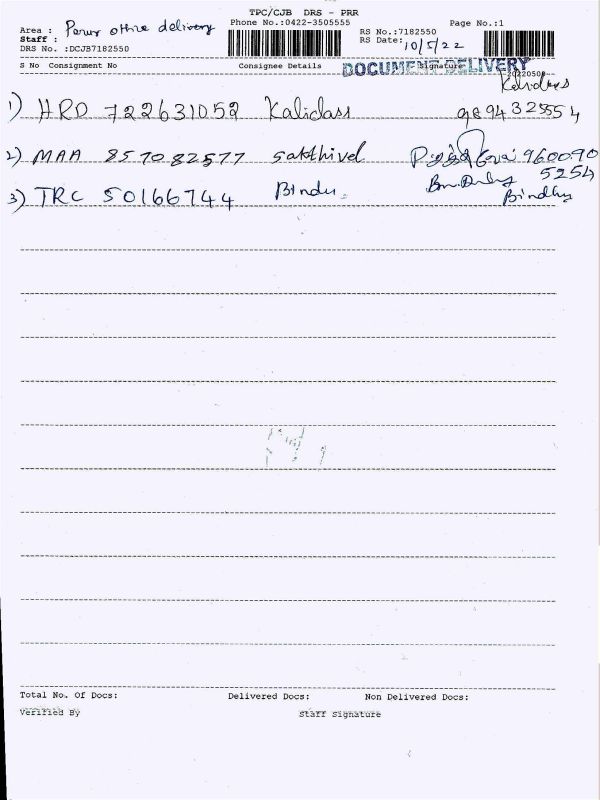 TPC/CJB DRS - PRR
Area : Perur office delivery Phone No.:0422-3505555 RS No.:7182550 Page No.:1
Staff : RS Date: 10/5/22
DRS No. :DCJB7182550
DOCUMENT DELIVERY
S No Consignment No Consignee Details Signature
Kalidass
1) HRD 722631052 Kalidass 9894325554
2) MAA 857082577 Sakthivel 960090
5254
3) TRC 50166744 Bindu. Bindhu
Total No. Of Docs: Delivered Docs: Non Delivered Docs:
Verified By Staff Signature